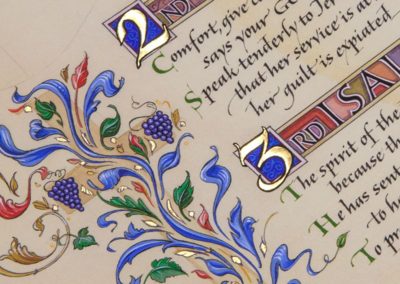 2ND
Comfort, give
says your
Speak tenderly to
that her service is
her guilt is expiated
3RD ISAI
The spirit of the
because th
He has sent
to
To